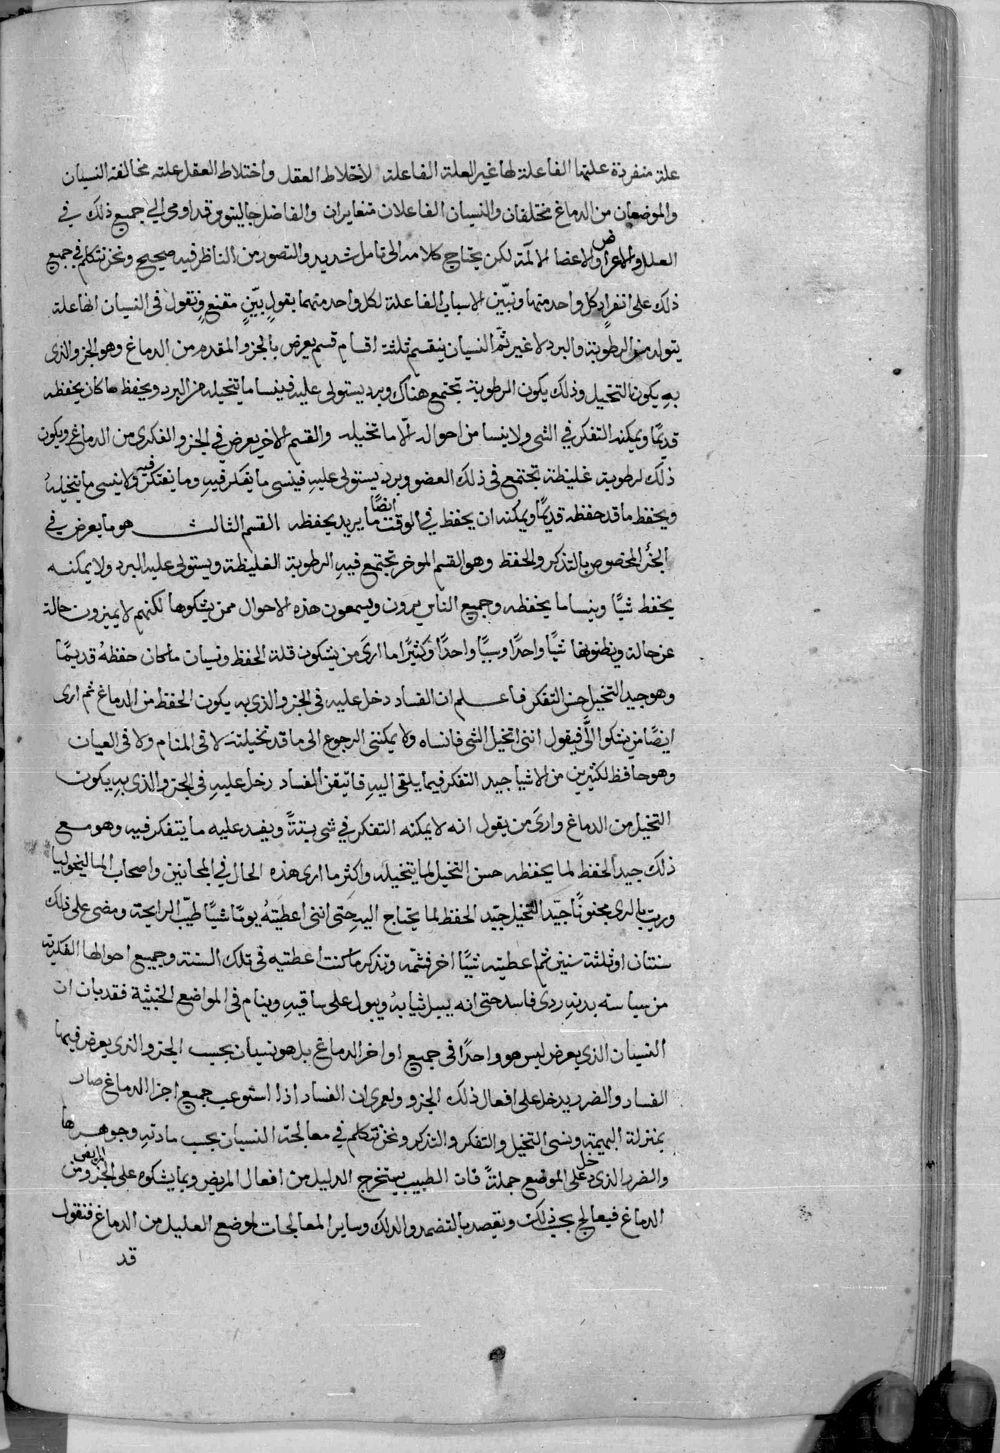 علة منفردة علتها الفاعلة لها غير العلة الفاعلة لاختلاط العقل واختلاط العقل علته مخالفة النسيان
والموضعان من الدماغ مختلفان والنسيان الفاعلان متغايران والفاضل جالينوس قد اومى الى جميع ذلك في
العلل والاعراض والاعضا الالمة لكن يحتاج كلامه الى تامل شديد والتصور من الناظر فيه صحيح ونحن نتكلم في جميع
ذلك على انفراد كل واحد منها ونبين الاسباب الفاعلة لكل واحد منهما بقول بيّن مقنع ونقول في النسيان الفاعلة
يتولد من الرطوبة والبرد لا غير ثم النسيان ينقسم ثلثة اقسام قسم يعرض بالجزو المقدم من الدماغ وهو الجزو الذى
به يكون التخيل وذلك يكون الرطوبة تجتمع هناك وبرد يستولى عليه فينسا ما يتخيله من البرد ويحفظ ما كان يحفظه
قديمًا ويمكنه التفكر في الشى ولا ينسا من احواله الا ما تخيله والقسم الاخر يعرض في الجزو الفكرى من الدماغ ويكون
ذلك لرطوبة غليظة تجتمع فى ذلك العضو وبرد يستولى عليه فينسى ما يفكر فيه وما يفتكر فيه ولا ينسى ما يتخيله
ويحفظ ما قد حفظه قديمًا ويمكنه ان يحفظ في الوقت ايضًا ما يريد يحفظه القسم الثالث هو ما يعرض في
الجزء المخصوص بالتذكر والحفظ وهو القسم الموخر تجتمع فيه الرطوبة الغليظة ويستولى عليه البرد ولا يمكنه
يحفظ شيًا وينسا ما يحفظه وجميع الناس يرون ويسمعون هذه الاحوال ممن يشكوها لكنهم لا يميزون حالة
عن حالة ويظنونها شيًا واحدًا وسببًا واحدًا وكثيرًا ما ارى من يشكون قلة الحفظ ونسيان ما كان حفظه قديمًا
وهو جيد التخيل حسن التفكر فاعلم ان الفساد دخل عليه فى الجزو الذى به يكون الحفظ من الدماغ ثم ارى
ايضًا من يشكوا الىّ فيقول اننى اتخيل الشى فانساه ولا يمكننى الرجوع الى ما قد تخيلته لا فى المنام ولا فى العيان
وهو حافظ لكثير من الاشيا جيد التفكر فيما يلقى اليه فاتيقن الفساد دخل عليه فى الجزو الذى به يكون
التخيل من الدماغ وارى من يقول انه لا يمكنه التفكر في شى بتةً ويفسد عليه ما يتفكر فيه وهو مع
ذلك جيد الحفظ لما يحفظه حسن التخيل لما يتخيله واكثر ما ارى هذه الحال في المجانين واصحاب الماليخوليا
ورايت بالرى مجنونًا جيّد التخيل جيّد الحفظ لما يحتاج اليه حتى اننى اعطيته يومًا شيًا طيّب الرايحة ومضى على ذلك
سنتان او ثلثة سنين ثم اعطيته شيًا اخر فشمّه وتذكر ما كنت اعطيه فى تلك السنة وجميع احوالها الفكرية
من سياسة بدنه ردى فاسد حتى انه يبل ثيابه ويبول على ساقيه وينام فى المواضع الخبيثة فقد بان ان
النسيان الذي يعرض ليس هو واحدًا فى جميع اواخر الدماغ بل هو نسيان بحسب الجزو الذى يعرض فيها
الفساد والضرر يدخل على افعال ذلك الجزو ولعمرى ان الفساد اذا استوعب جميع اجزا الدماغ صار
بمنزلة البهيمة ونسى التخيل والتفكر والتذكر ونحن نتكلم في معالجة النسيان بحسب مادته وجوهرها
والضرر الذى دخل على الموضع جملةً فان الطبيب يستخرج الدليل من افعال المريض وبما يشكوه على الجزو المريض من
الدماغ فيعالج بحسب ذلك ويقصد بالتضمد والدلك وساير المعالجات لموضع العليل من الدماغ فنقول
قد